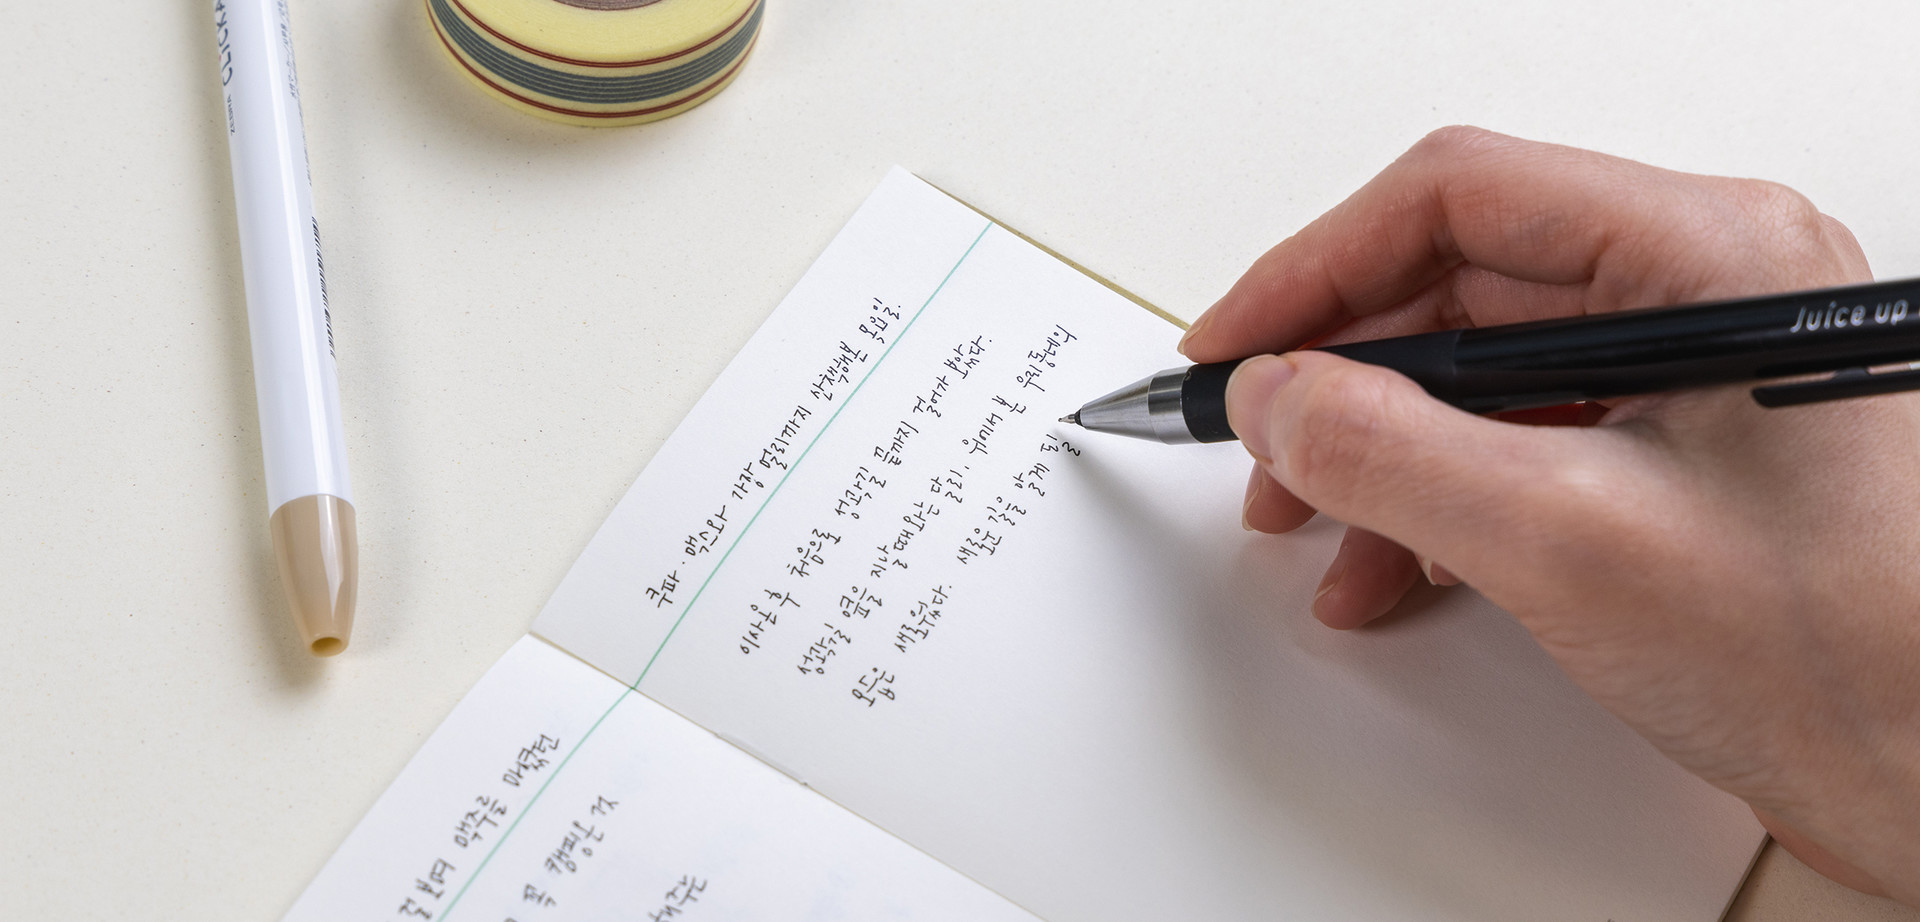 ZEBRA CLICKA
Juice up
쿠파·맥스와 가장 멀리까지 산책해본 목요일.
이사온 후 처음으로 성곽길 끝까지 걸어가 보았다.
성곽길 옆을 지날 때와는 달리, 위에서 본 우리동네의
모습은 새로웠다. 새로운 길을 알게 될
보며 맥주를 마셨던
캠핑은